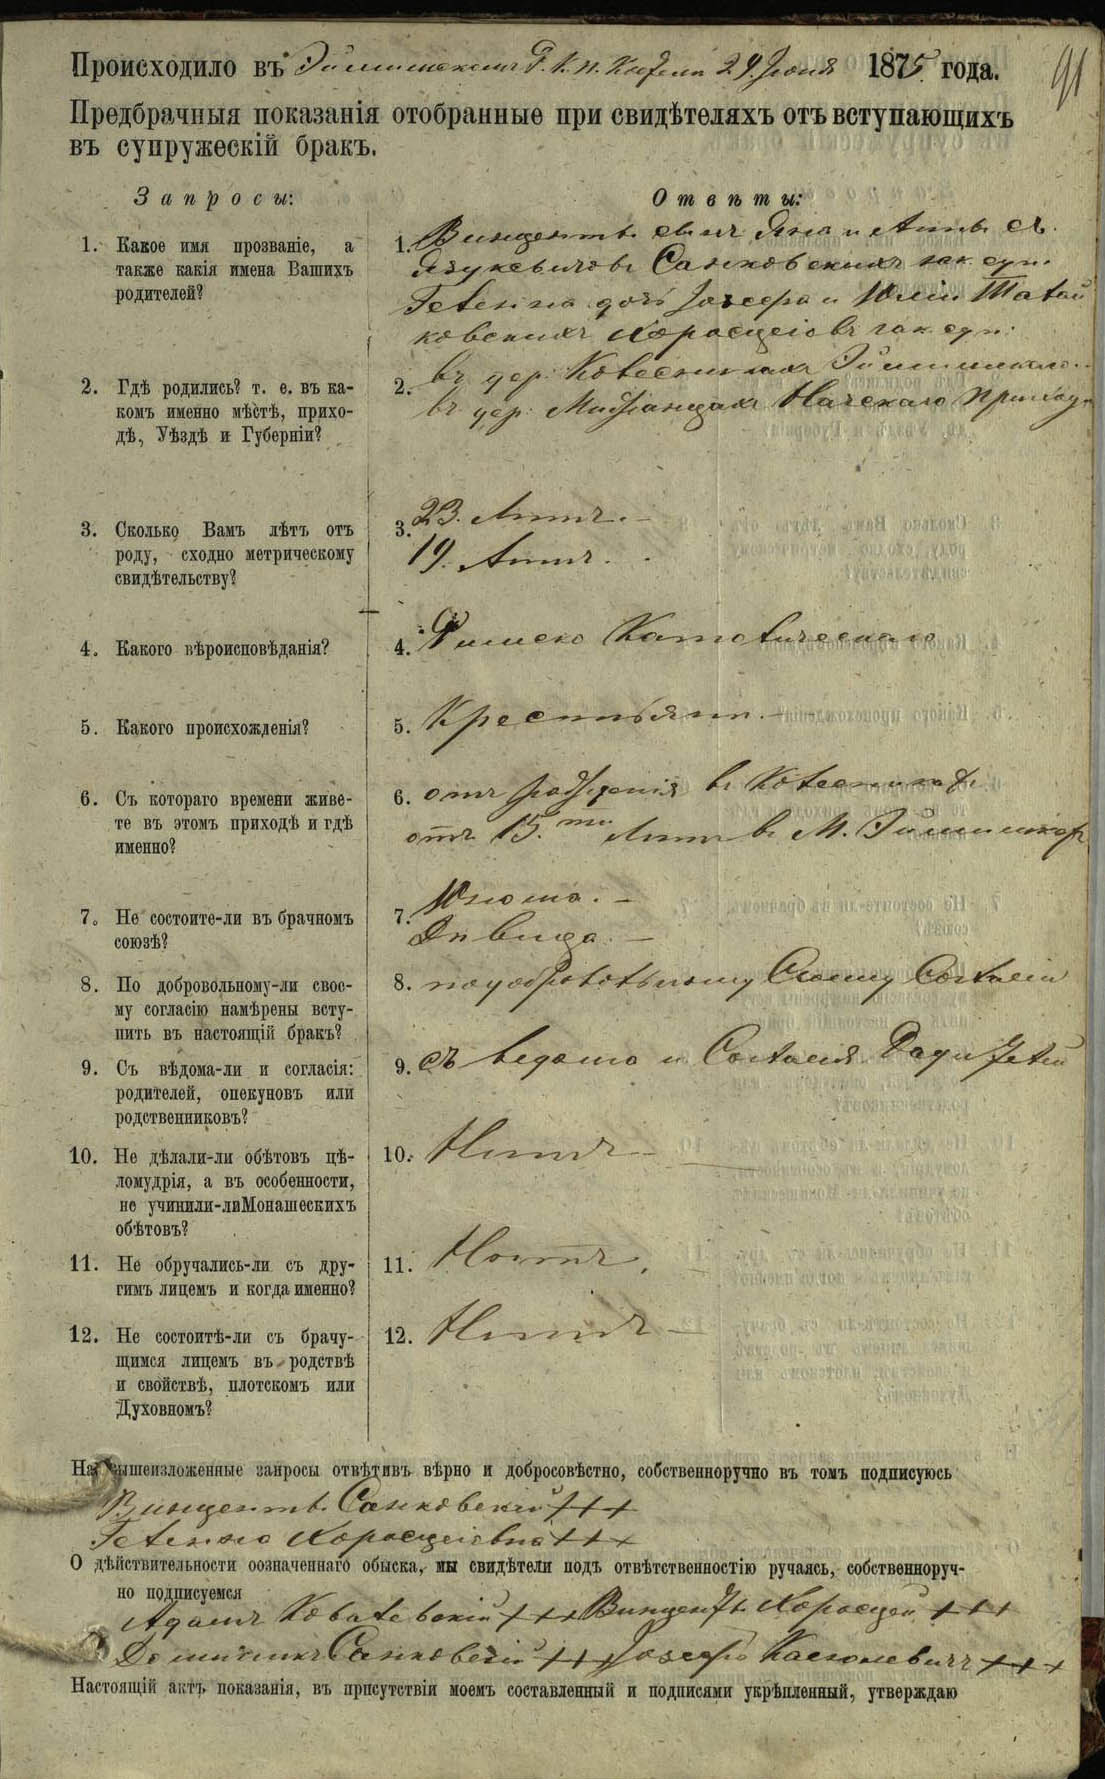 Происходило въ Эйшишскомъ Р. К. п. Костелѣ 29 Іюня 1875 года.
91
Предбрачныя показанія отобранные при свидѣтеляхъ отъ вступающихъ
въ супружескій бракъ.
Запросы:
1. Какое имя прозваніе, а
также какія имена Вашихъ
родителей?
2. Гдѣ родились? т. е. въ ка-
комъ именно мѣстѣ, прихо-
дѣ, Уѣздѣ и Губерніи?
3. Сколько Вамъ лѣтъ отъ
роду, сходно метрическому
свидѣтельству?
4. Какого вѣроисповѣданія?
5. Какого происхожденія?
6. Съ котораго времени живе-
те въ этомъ приходѣ и гдѣ
именно?
7. Не состоите-ли въ брачномъ
союзѣ?
8. По добровольному-ли свое-
му согласію намѣрены всту-
пить въ настоящій бракъ?
9. Съ вѣдома-ли и согласія:
родителей, опекуновъ или
родственниковъ?
10. Не дѣлали-ли обѣтовъ цѣ-
ломудрія, а въ особенности,
не учинили-ли Монашескихъ
обѣтовъ?
11. Не обручались-ли съ дру-
гимъ лицемъ и когда именно?
12. Не состоитѣ-ли съ брачу-
щимся лицемъ въ родствѣ
и свойствѣ, плотскомъ или
Духовномъ?
Отвѣты:
1. Винцентъ сынъ Яна и Анны съ
Янукевичовъ Санковскихъ зак. суп.
Гелена дочь Іозефа и Юліи Шатай
ковскихъ Хоросцеіовъ зак. суп.
2. въ дер. Колесникахъ Эйшишскаго
въ дер. Начскаго прихода
3. 23. Лѣтъ. —
19. Лѣтъ.
4. Римско Католическаго
5. Крестьяне. —
6. отъ рожденія въ Колесникахъ
отъ 15.ти Лѣтъ въ М. Эйшишкахъ
7. Юноша. —
Дѣвица. —
8. по добровольному Своему Согласію
9. съ ведома и Согласія Родителей
10. Нѣтъ —
11. Нѣтъ.
12. Нѣтъ —
На вышеизложенные запросы отвѣтивъ вѣрно и добросовѣстно, собственноручно въ томъ подписуюсь
Винцентъ Санковскій +++
Гелена Хоросцеіовна +++
О дѣйствительности оозначеннаго обыска, мы свидѣтели подъ отвѣтственностію ручаясь, собственноруч-
но подписуемся
Адамъ Ковалевскій +++ Винцентъ Хоросцей +++
Доминикъ Санковскій +++ Іозефъ Касюлевичъ +++
Настоящій актъ показанія, въ присутствіи моемъ составленный и подписями укрѣпленный, утверждаю